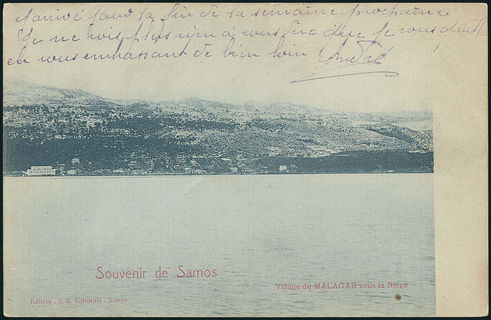 arrivé pour la fin de la semaine prochaine
Je ne vois plus rien à vous dire je vous
en vous embrassant de bien loin André
Souvenir de Samos
Village de MALAGAR sous la Neige
Editeur : S. A. - Samos